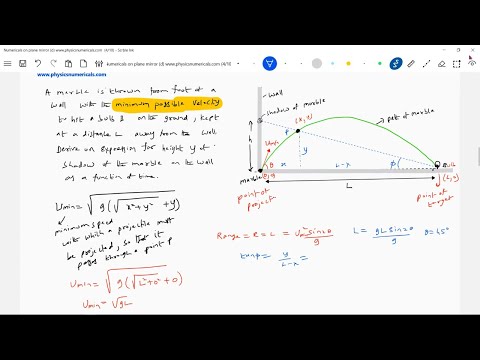 Numericals on plane mirror (d) www.physicsnumericals.com (4/10) - Scrble Ink
numericals on plane mirror (d) www.physicsnumericals.com (4/10)
www.physicsnumericals.com
A marble is thrown from foot of a
wall with the minimum possible velocity
to hit a bulb B on the ground, kept
at a distance L away from the wall
Derive an expression for height y of
Shadow of the marble on the wall
as a function of time.
Umin = √g(√x²+y² + y)
minimum speed
with which a projectile must
be projected, so that it
passes through a point P
Umin = √g(√L²+0² + 0)
Umin = √gL
wall
shadow of marble
(x, y)
path of marble
P
h
Umin
y
θ
x
L-x
ϕ
Bulb
marble
(0, 0)
(L, 0)
L
point of
projection
point of
target
Range = R = L = Um² sin2θ / g
L = gL sin2θ / g
θ = 45°
tanϕ = y / L-x =